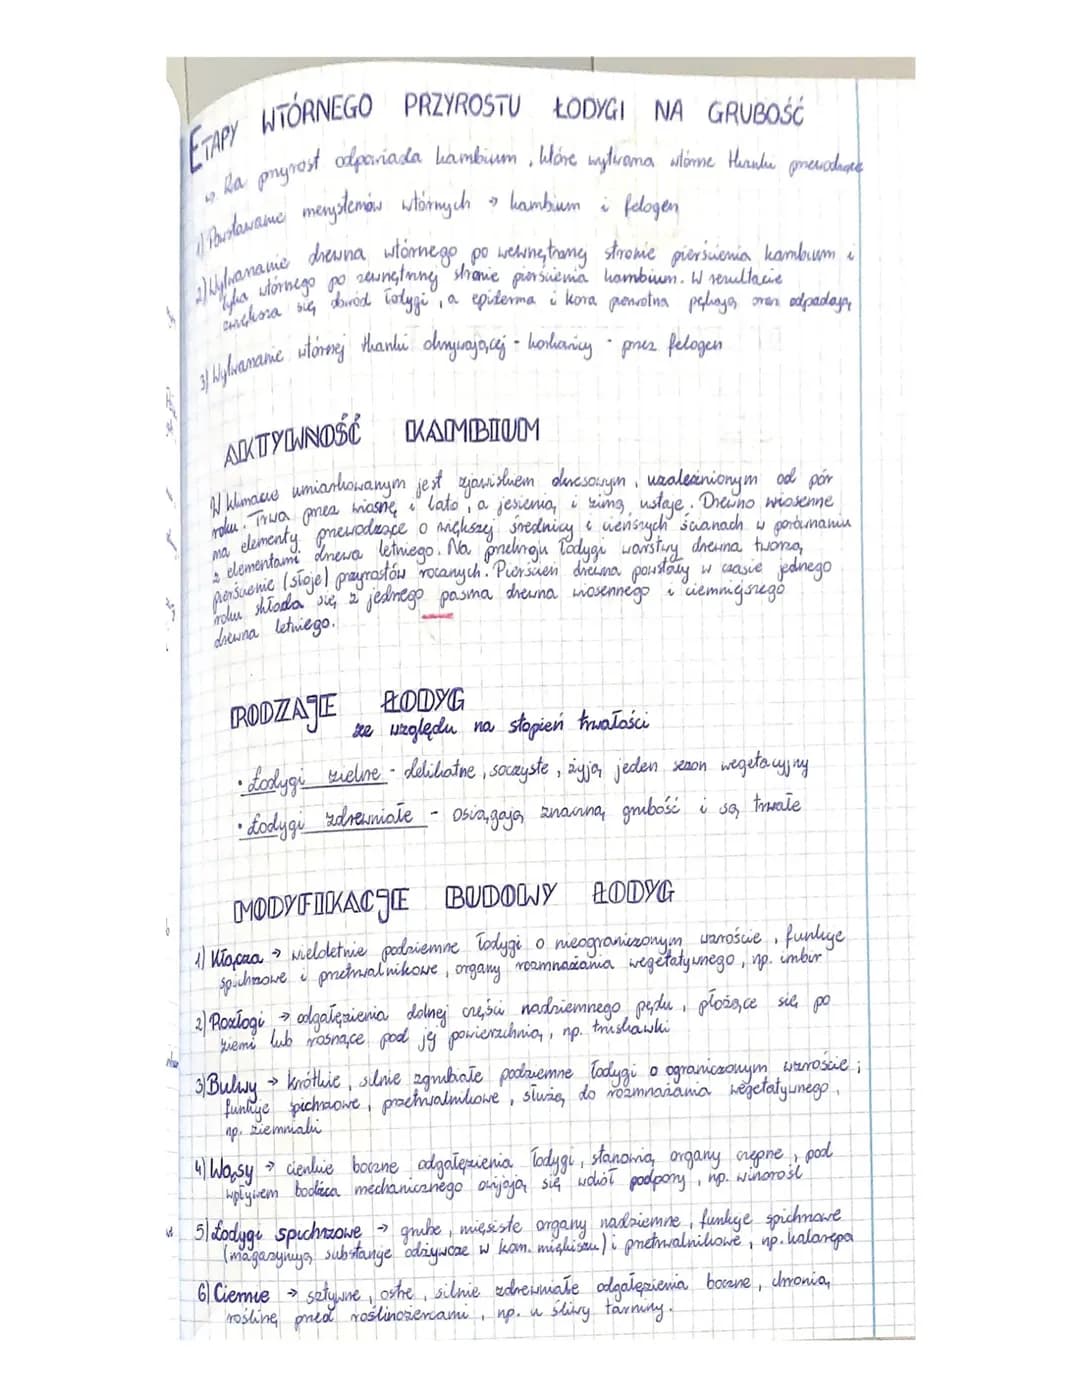 ETAPY WTÓRNEGO PRZYROSTU ŁODYGI NA GRUBOŚĆ
↳ Za przyrost odpowiada kambium, które wytwarza wtórne tkanki przewodzące
1) Powstawanie merystemów wtórnych → kambium i felogen
2) Wytwarzanie drewna wtórnego po wewnętrznej stronie pierścienia kambium i
łyka wtórnego po zewnętrznej stronie pierścienia kambium. W rezultacie
zwiększa się obwód łodygi, a epiderma i kora pierwotna pękają oraz odpadają
3) Wytwarzanie wtórnej tkanki okrywającej - korkowicy - przez felogen
AKTYWNOŚĆ KAMBIUM
W klimacie umiarkowanym jest zjawiskiem okresowym, uzależnionym od pór
roku. Trwa przez wiosnę i lato, a jesienią i zimą ustaje. Drewno wiosenne
ma elementy przewodzące o większej średnicy i cieńszych ścianach w porównaniu
z elementami drewna letniego. Na przekroju łodygi warstwy drewna tworzą
pierścienie (słoje) przyrostów rocznych. Pierścień drewna powstały w czasie jednego
roku składa się z jednego pasma drewna wiosennego i ciemniejszego
drewna letniego.
RODZAJE ŁODYG
ze względu na stopień trwałości
• Łodygi zielne - delikatne, soczyste, żyją jeden sezon wegetacyjny
• Łodygi zdrewniałe - osiągają znaczną grubość i są trwałe
MODYFIKACJE BUDOWY ŁODYG
1) Kłącza → wieloletnie podziemne łodygi o nieograniczonym wzroście, funkcje
spichrzowe i przetrwalnikowe, organy rozmnażania wegetatywnego, np. imbir
2) Rozłogi → odgałęzienia dolnej części nadziemnego pędu, płożące się po
ziemi lub rosnące pod jej powierzchnią, np. truskawki
3) Bulwy → krótkie, silnie zgrubiałe podziemne łodygi o ograniczonym wzroście;
funkcje spichrzowe, przetrwalnikowe, służą do rozmnażania wegetatywnego,
np. ziemniaki
4) Wąsy → cienkie boczne odgałęzienia łodygi, stanowią organy czepne, pod
wpływem bodźca mechanicznego owijają się wokół podpory, np. winorośl
5) Łodygi spichrzowe → grube, mięsiste organy nadziemne, funkcje spichrzowe
(magazynują substancje odżywcze w kom. miękiszu) i przetrwalnikowe, np. kalarepa
6) Ciernie → sztywne, ostre, silnie zdrewniałe odgałęzienia boczne, chronią
roślinę przed roślinożercami, np. u śliwy tarniny.